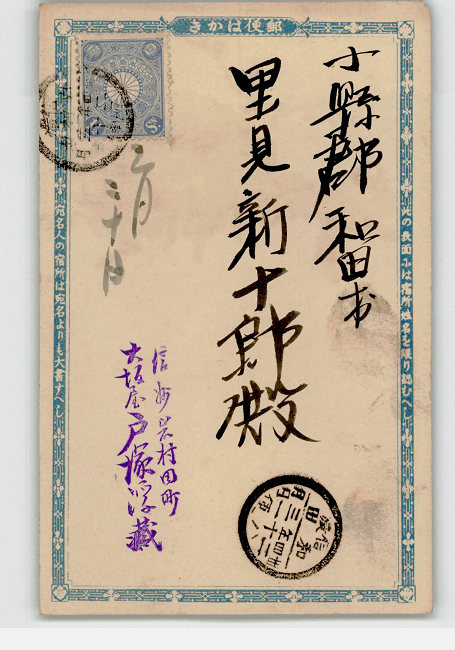 郵便はかき
小縣郡和田村
里見新十郎殿
三月
三十日
信州岩村田町
大坂屋戸塚浮藏
此の表面ふは宿所姓名を限り認むへし
宛名人の宿所は宛名よりも大書すへし
和田